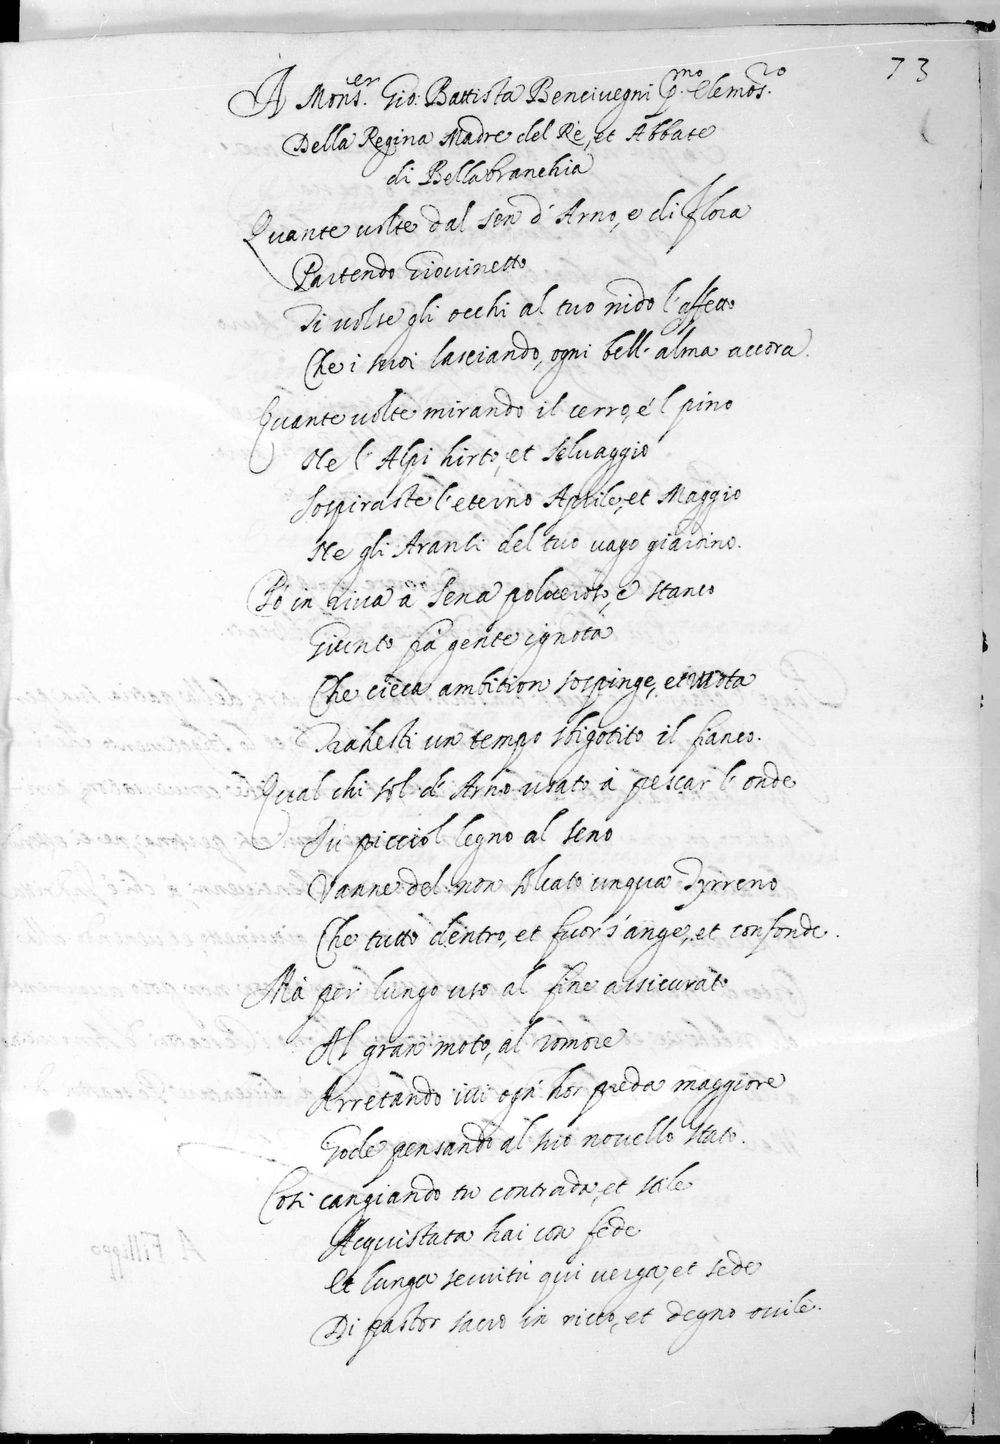 73
A Mons.er Gio: Battista Bencivegni P.mo Elemos.ro
Della Regina Madre del Rè, et Abbate
di Bellabranchia
Quante volte dal sen d'Arno, e di Flora
Partendo Giovinetto
Ti volse gli occhi al tuo nido l'affetto
Che i suoi lasciando, ogni bell'alma accora.
Quante volte mirando il cerro, e'l pino
Ne l'Alpi hirto, et selvaggio
Sospiraste l'eterno Aprile, et Maggio
Ne gli Aranci del tuo vago giardino.
Pò in riva à Sena polveroso, e stanco
Giunto frà gente ignota
Che cieca ambition sospinge, et ruota
Trahesti un tempo sbigotito il fianco.
Qual chi sol d'Arno usato à pescar l'onde
Sù picciol legno al seno
Vanne del non solcato unqua Tyrreno
Che tutto dentro, et fuor s'ange, et confonde.
Mà per lungo uso al fine assicurato
Al gran moto, al romore
Arretando ivi ogn'hor preda maggiore
Gode pensando al suo novello stato.
Così cangiando tu contrada, et stile
Acquistata hai con fede
Et lunga servitù qui verga, et sede
Di pastor sacro in ricco, et degno ovile.
A Filippo